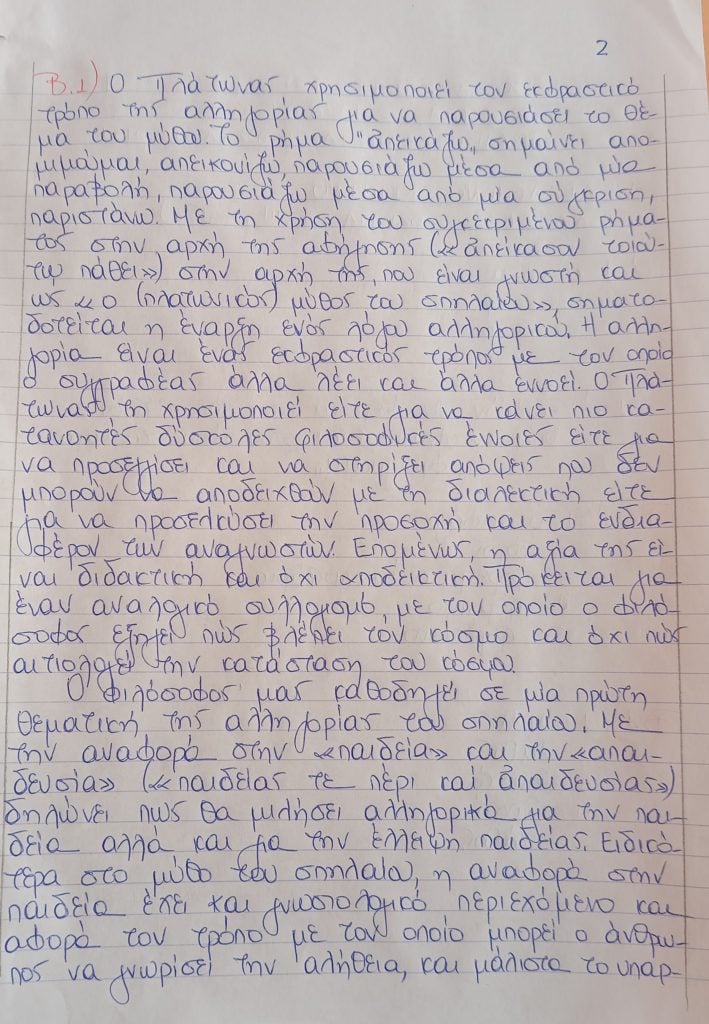 2
Β.1) Ο Πλάτωνας χρησιμοποιεί τον εκφραστικό
τρόπο της αλληγορίας για να παρουσιάσει το θέ-
μα του μύθου. Το ρήμα "ἀπεικάζω„ σημαίνει απο-
μιμούμαι, απεικονίζω, παρουσιάζω μέσα από μια
παραβολή, παρουσιάζω μέσα από μια σύγκριση,
παριστάνω. Με τη χρήση του συγκεκριμένου ρήμα-
τος στην αρχή της αφήγησης («ἀπείκασον τοιού-
τῳ πάθει») στην αρχή της, που είναι γνωστή και
ως «ο (πλατωνικός) μύθος του σπηλαίου», σηματο-
δοτείται η έναρξη ενός λόγου αλληγορικού. Η αλλη-
γορία είναι ένας εκφραστικός τρόπος με τον οποίο
ο συγγραφέας άλλα λέει και άλλα εννοεί. Ο Πλά-
τωνας τη χρησιμοποιεί είτε για να κάνει πιο κα-
τανοητές δύσκολες φιλοσοφικές έννοιες είτε για
να προσεγγίσει και να στηρίξει απόψεις που δεν
μπορούν να αποδειχθούν με τη διαλεκτική είτε
για να προσελκύσει την προσοχή και το ενδια-
φέρον των αναγνωστών. Επομένως, η αξία της εί-
ναι διδακτική και όχι αποδεικτική. Πρόκειται για
έναν αναλογικό συλλογισμό, με τον οποίο ο φιλό-
σοφος εξηγεί πώς βλέπει τον κόσμο και όχι πώς
αιτιολογεί την κατάσταση του κόσμου.
Ο φιλόσοφος μας καθοδηγεί σε μία πρώτη
θεματική της αλληγορίας του σπηλαίου. Με
την αναφορά στην «παιδεία» και την «απαι-
δευσία» («παιδείας τε πέρι καὶ ἀπαιδευσίας»)
δηλώνει πως θα μιλήσει αλληγορικά για την παι-
δεία αλλά και για την έλλειψη παιδείας. Ειδικό-
τερα στο μύθο του σπηλαίου, η αναφορά στην
παιδεία έχει και γνωσιολογικό περιεχόμενο και
αφορά τον τρόπο με τον οποίο μπορεί ο άνθρω-
πος να γνωρίσει την αλήθεια, και μάλιστα το υπαρ-